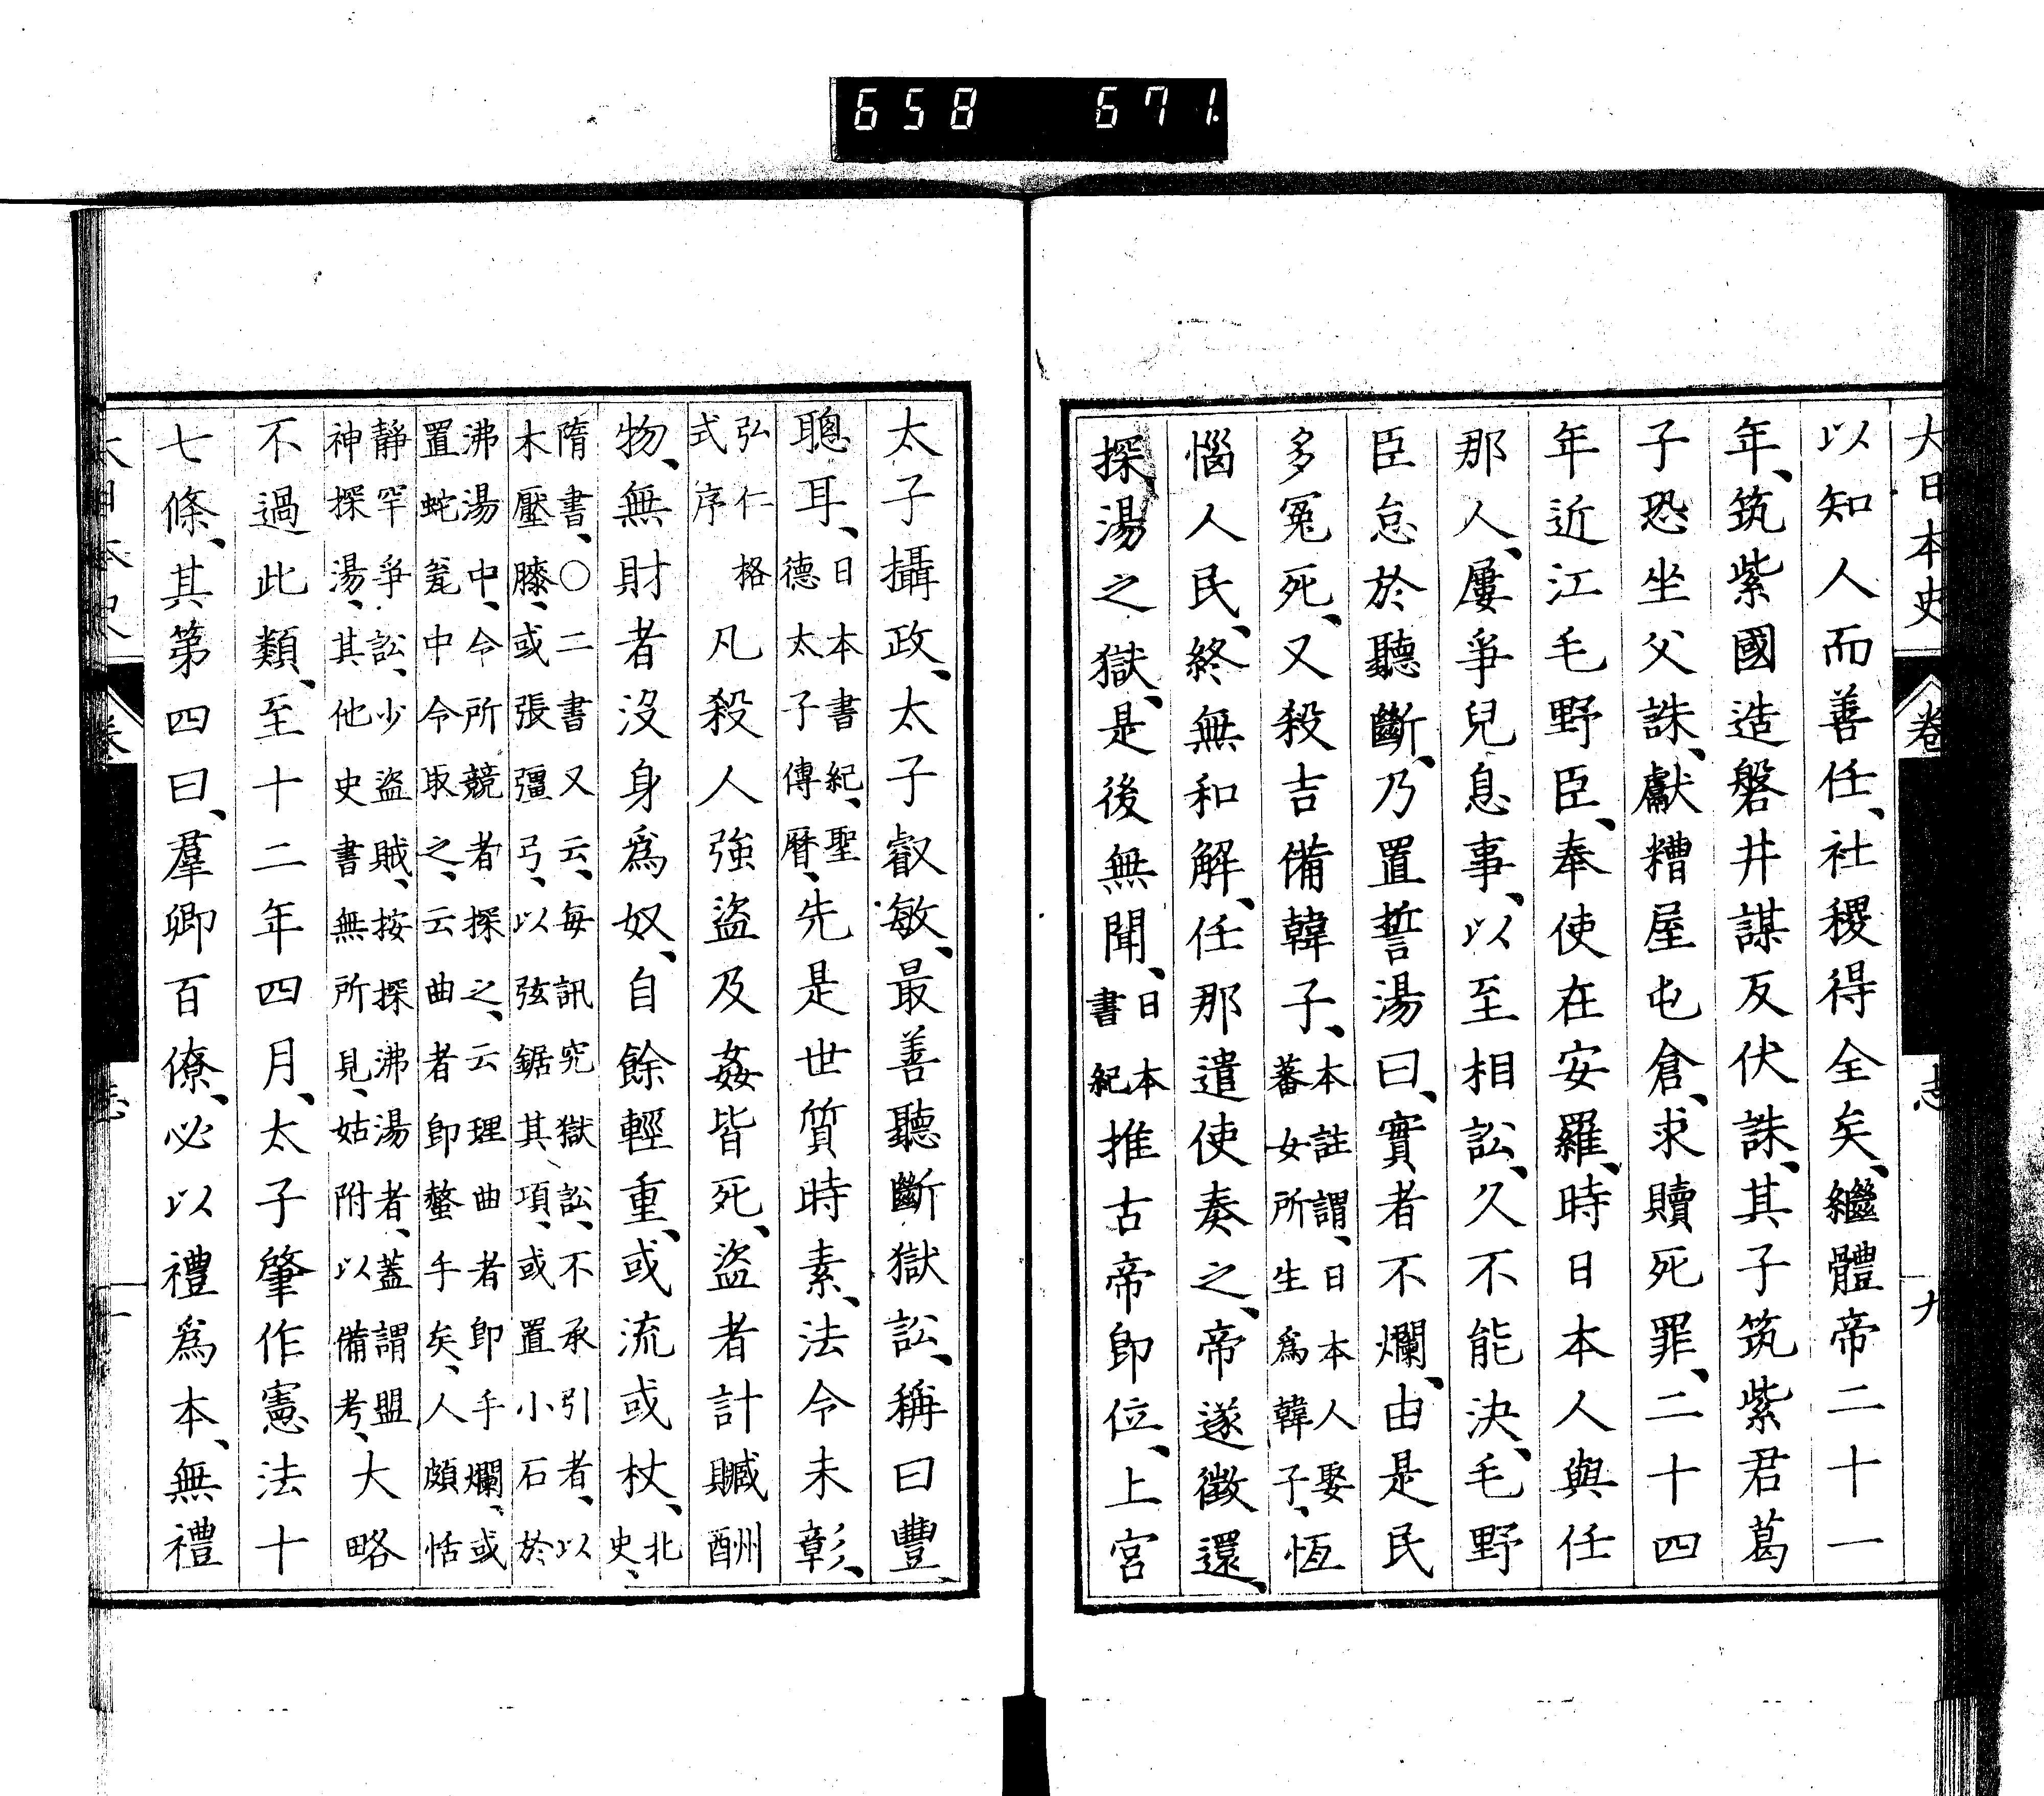 658 671
大日本史 卷 志 九
以知人而善任、社稷得全矣、繼體帝二十一
年、筑紫國造磐井謀反伏誅、其子筑紫君葛
子恐坐父誅、獻糟屋屯倉、求贖死罪、二十四
年近江毛野臣、奉使在安羅、時日本人與任
那人、屢爭兒息事、以至相訟、久不能決、毛野
臣怠於聽斷、乃置誓湯曰、實者不爛、由是民
多冤死、又殺吉備韓子、本註謂、日本人娶蕃女所生爲韓子、恆
惱人民、終無和解、任那遣使奏之、帝遂徵還、
探湯之獄、是後無聞、日本書紀推古帝即位、上宮
太子攝政、太子叡敏、最善聽斷獄訟、稱曰豐
聰耳、日本書紀、聖德太子傳曆、先是世質時素、法令未彰、
弘仁格式序凡殺人強盜及姦皆死、盜者計贓酬
物、無財者沒身爲奴、自餘輕重、或流或杖、北史、
隋書、○二書又云、每訊究獄訟、不承引者、以木壓膝、或張彊弓、以弦鋸其項、或置小石於
沸湯中、令所競者探之、云理曲者即手爛、或置蛇瓮中令取之、云曲者即螫手矣、人頗恬
靜罕爭訟、少盜賊、按探沸湯者、蓋謂盟神探湯、其他史書無所見、姑附以備考、大略
不過此類、至十二年四月、太子肇作憲法十
七條、其第四曰、羣卿百僚、必以禮爲本、無禮